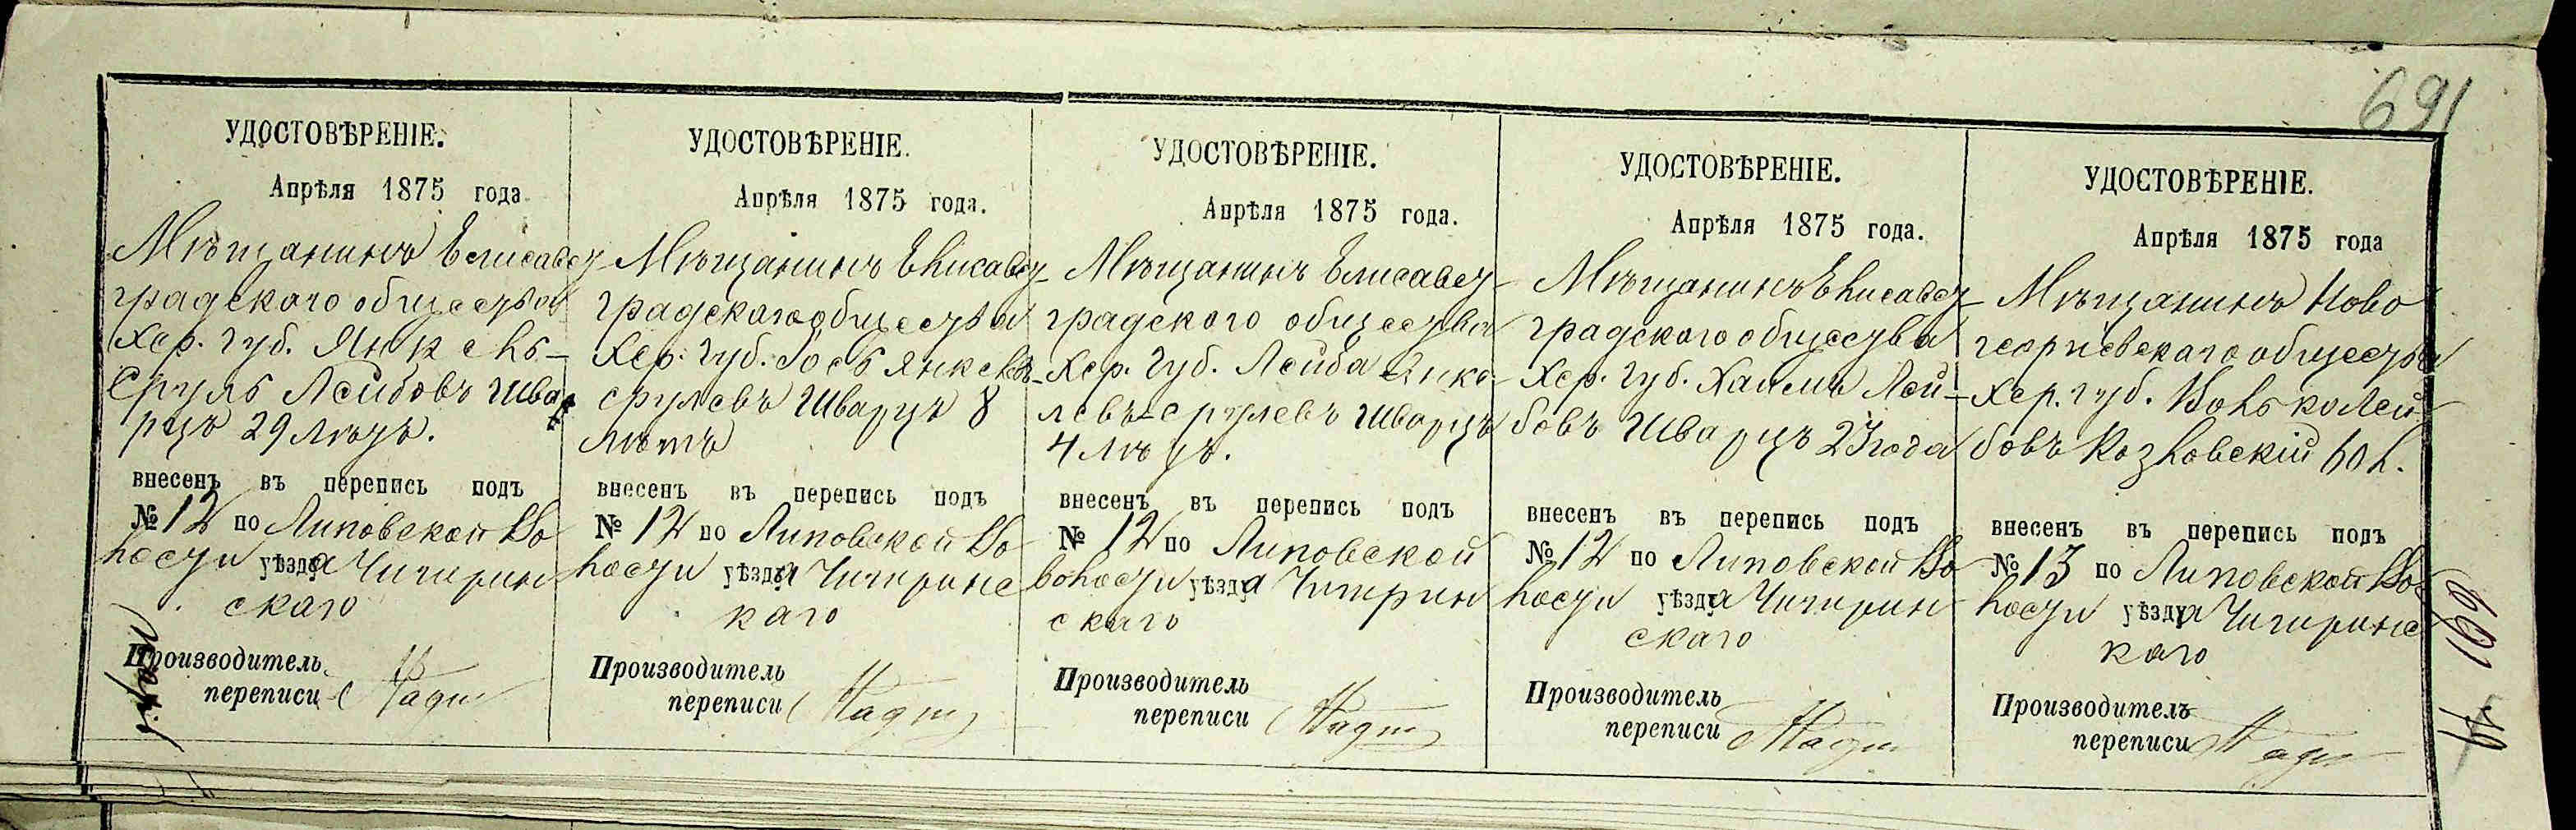 691
УДОСТОВѢРЕНІЕ.
Апрѣля 1875 года
Мѣщанинъ Елисавет
градскаго общества
Хер. губ. Янкель-
Сруль Лейбовъ Шва
рцъ 29 лѣтъ.
внесенъ въ перепись подъ
№ 12 по Липовской Во
лости уѣзда Чигирин
скаго
Производитель
переписи
УДОСТОВѢРЕНІЕ.
Апрѣля 1875 года.
Мѣщанинъ Елисавет
градскаго общества
Хер. губ. Іось Янкелевъ-
срулевъ Шварцъ 8
лѣтъ
внесенъ въ перепись подъ
№ 12 по Липовской Во
лости уѣзда Чигиринс
каго
Производитель
переписи
УДОСТОВѢРЕНІЕ.
Апрѣля 1875 года.
Мѣщанинъ Елисавет
градского общества
Хер. губ. Лейба Янке
левъ-срулевъ Шварцъ
4 лѣтъ.
внесенъ въ перепись подъ
№ 12 по Липовской
волости уѣзда Чигирин
скаго
Производитель
переписи
УДОСТОВѢРЕНІЕ.
Апрѣля 1875 года.
Мѣщанинъ Елисавет
градского общества
Хер. губ. Хаимъ Лей-
бовъ Шварцъ 23 года
внесенъ въ перепись подъ
№ 12 по Липовской Во
лости уѣзда Чигирин
скаго
Производитель
переписи
УДОСТОВѢРЕНІЕ.
Апрѣля 1875 года
Мѣщанинъ Ново
георгіевскаго общества
Хер. губ. Волько Лей
бовъ Козловскій 60 л.
внесенъ въ перепись подъ
№ 13 по Липовской Во
лости уѣзда Чигиринс
каго
Производитель
переписи
691